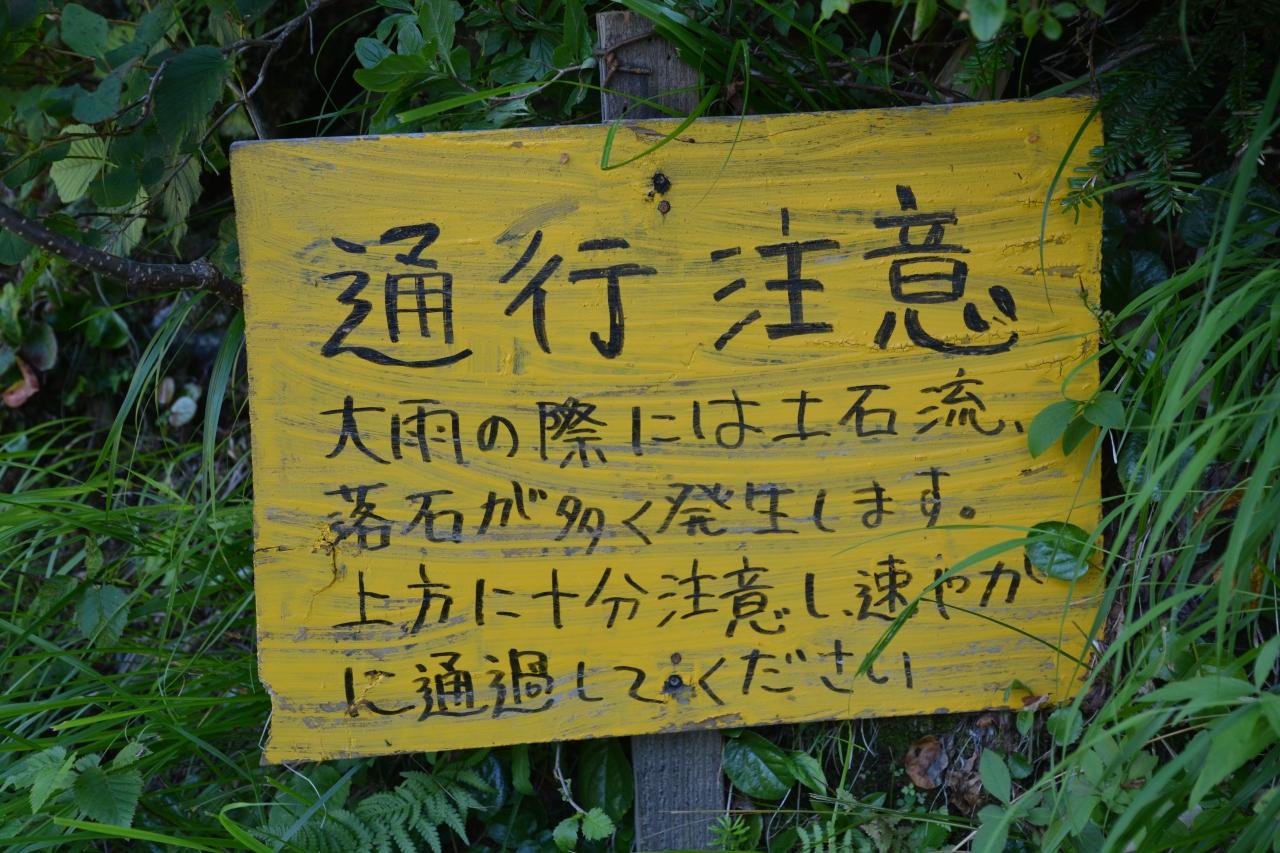 通行注意
大雨の際には土石流、
落石が多く発生します。
上方に十分注意し、速やか
に通過してください